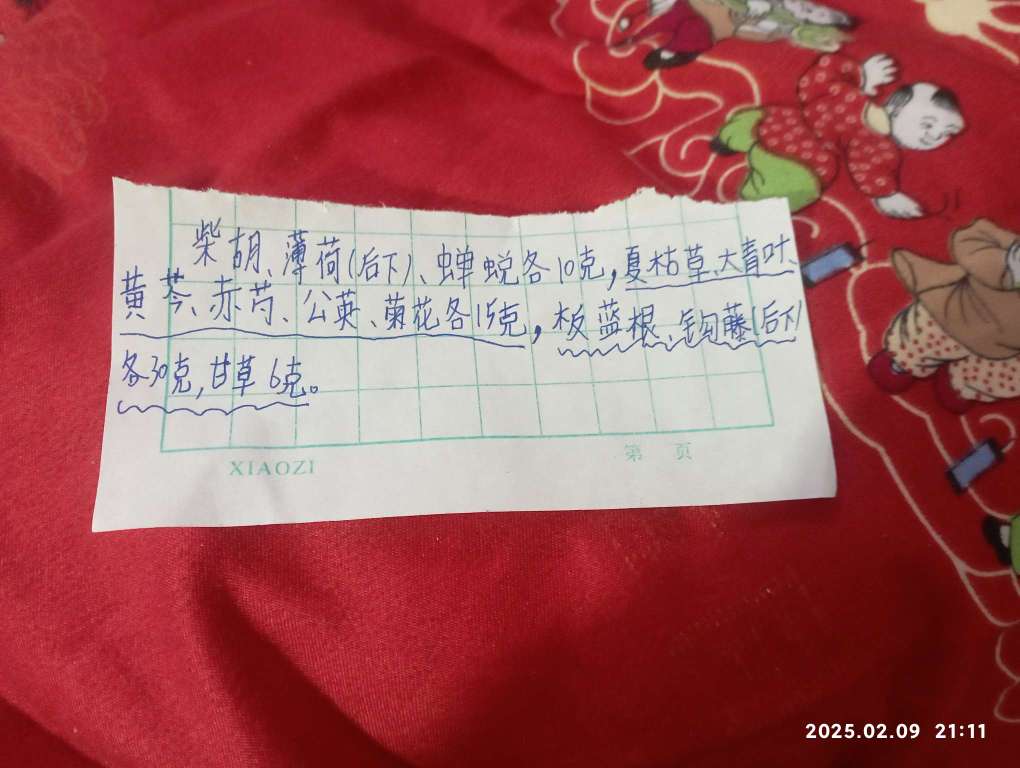 柴胡、薄荷(后下)、蝉蜕各10克,夏枯草、大青叶、
黄芩、赤芍、公英、菊花各15克,板蓝根、钩藤(后下)
各30克,甘草6克。
XIAOZI 第 页
2025.02.09 21:11